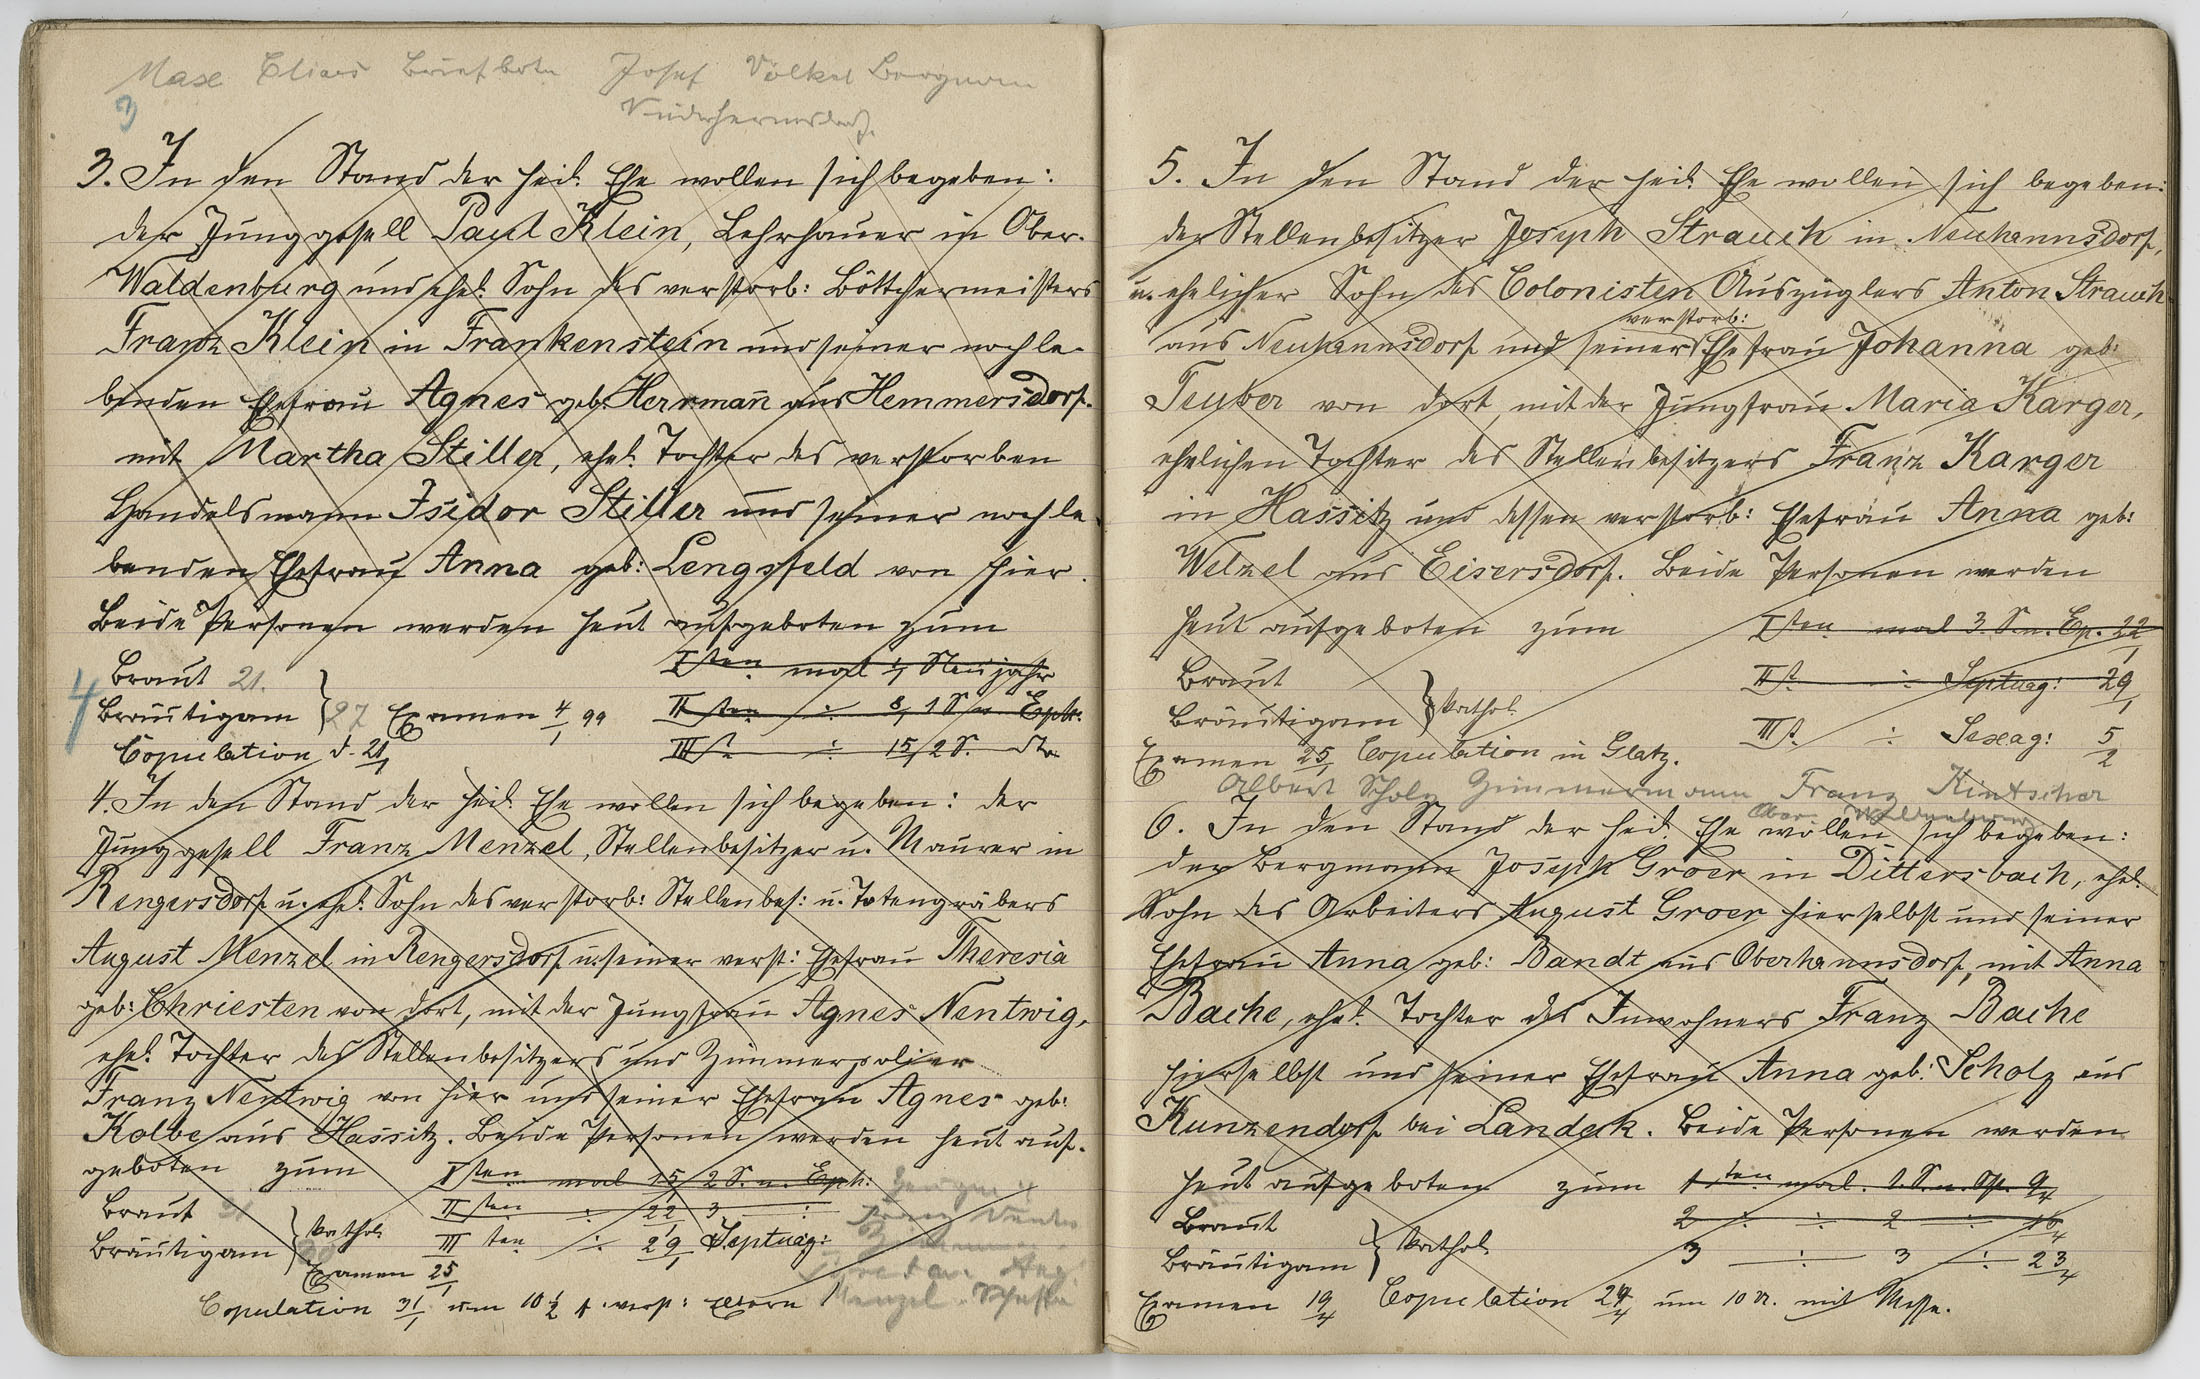 Josef Völkel Bergmann
Niederhermsdorf.
3
3. In den Stand der heil. Ehe wollen sich begeben:
der Junggesell Paul Klein, Lehrhauer in Ober-
Waldenburg und ehel. Sohn des verstorb: Böttchermeisters
Franz Klein in Frankenstein und seiner nochle-
benden Ehefrau Agnes geb: Herrmañ aus Hemmersdorf.
mit Martha Stiller, ehel. Tochter des verstorben
Handelsmann Isidor Stiller und seiner nochle-
benden Ehefrau Anna geb: Lengsfeld von hier.
Beide Personen werden heut aufgeboten zum
Iten mal 1/1 Neujahr
Braut 21.
4
Bräutigam 27 Examen 4/1 99 IIten 8/1 1 S. n. Eph.
Copulation d. 21/1 III 15/1 2 S.
4. In den Stand der heil. Ehe wollen sich begeben: der
Junggesell Franz Menzel, Stellenbesitzer u. Maurer in
Rengersdorf u. ehel. Sohn des verstorb: Stellenbes: u. Totengräbers
August Menzel in Rengersdorf u. seiner verst: Ehefrau Theresia
geb: Chriesten von dort, mit der Jungfrau Agnes Nentwig,
ehel. Tochter des Stellenbesitzers und Zimmerpolier
Franz Nentwig von hier und seiner Ehefrau Agnes geb:
Kolbe aus Hassitz. Beide Personen werden heut auf-
geboten zum Iten mal 15/1 2 S. n. Eph:
Braut IIten 22/1 3
Bräutigam kathol. IIIten 29/1 Septuag:
Examen 25/1
Copulation 31/1 um 10 1/2 verst: Eltern
Menzel
5. In den Stand der heil. Ehe wollen sich begeben:
der Stellenbesitzer Joseph Strauch in Neuhannsdorf,
u. ehelicher Sohn des Colonisten Auszüglers Anton Strauch
verstorb:
aus Neuhannsdorf und seiner Ehefrau Johanna geb:
Teuber von dort, mit der Jungfrau Maria Karger,
ehelichen Tochter des Stellenbesitzers Franz Karger
in Hassitz und dessen verstorb: Ehefrau Anna geb:
Welzel aus Eisersdorf. Beide Personen werden
heut aufgeboten zum Iten mal 3. S. n. Ep. 22/1
Braut II Septuag: 29/1
Bräutigam kathol. III Sexag: 5/2
Examen 25/1 Copulation in Glatz.
Albert Scholz Zimmermann Franz Kintscher
Ober Waldenburg
6. In den Stand der heil. Ehe wollen sich begeben:
der Bergmann Joseph Groer in Dittersbach, ehel.
Sohn des Arbeiters August Groer hierselbst und seiner
Ehefrau Anna geb: Bandt aus Oberhannsdorf, mit Anna
Bache, ehel. Tochter des Inwohners Franz Bache
hierselbst und seiner Ehefrau Anna geb: Scholz aus
Kunzendorf bei Landeck. Beide Personen werden
heut aufgeboten zum 1ten mal. 1. S. n. Ost. 9/4
Braut 2 2 16/4
Bräutigam kathol. 3 3 23/4
Examen 19/4 Copulation 24/4 um 10 U. mit Messe.